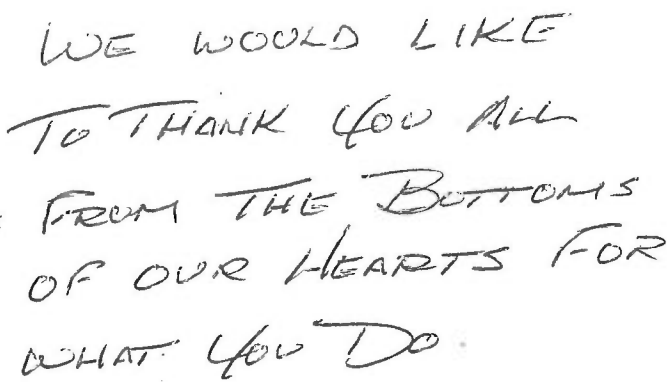 WE WOULD LIKE
TO THANK YOU ALL
FROM THE BOTTOMS
OF OUR HEARTS FOR
WHAT YOU DO